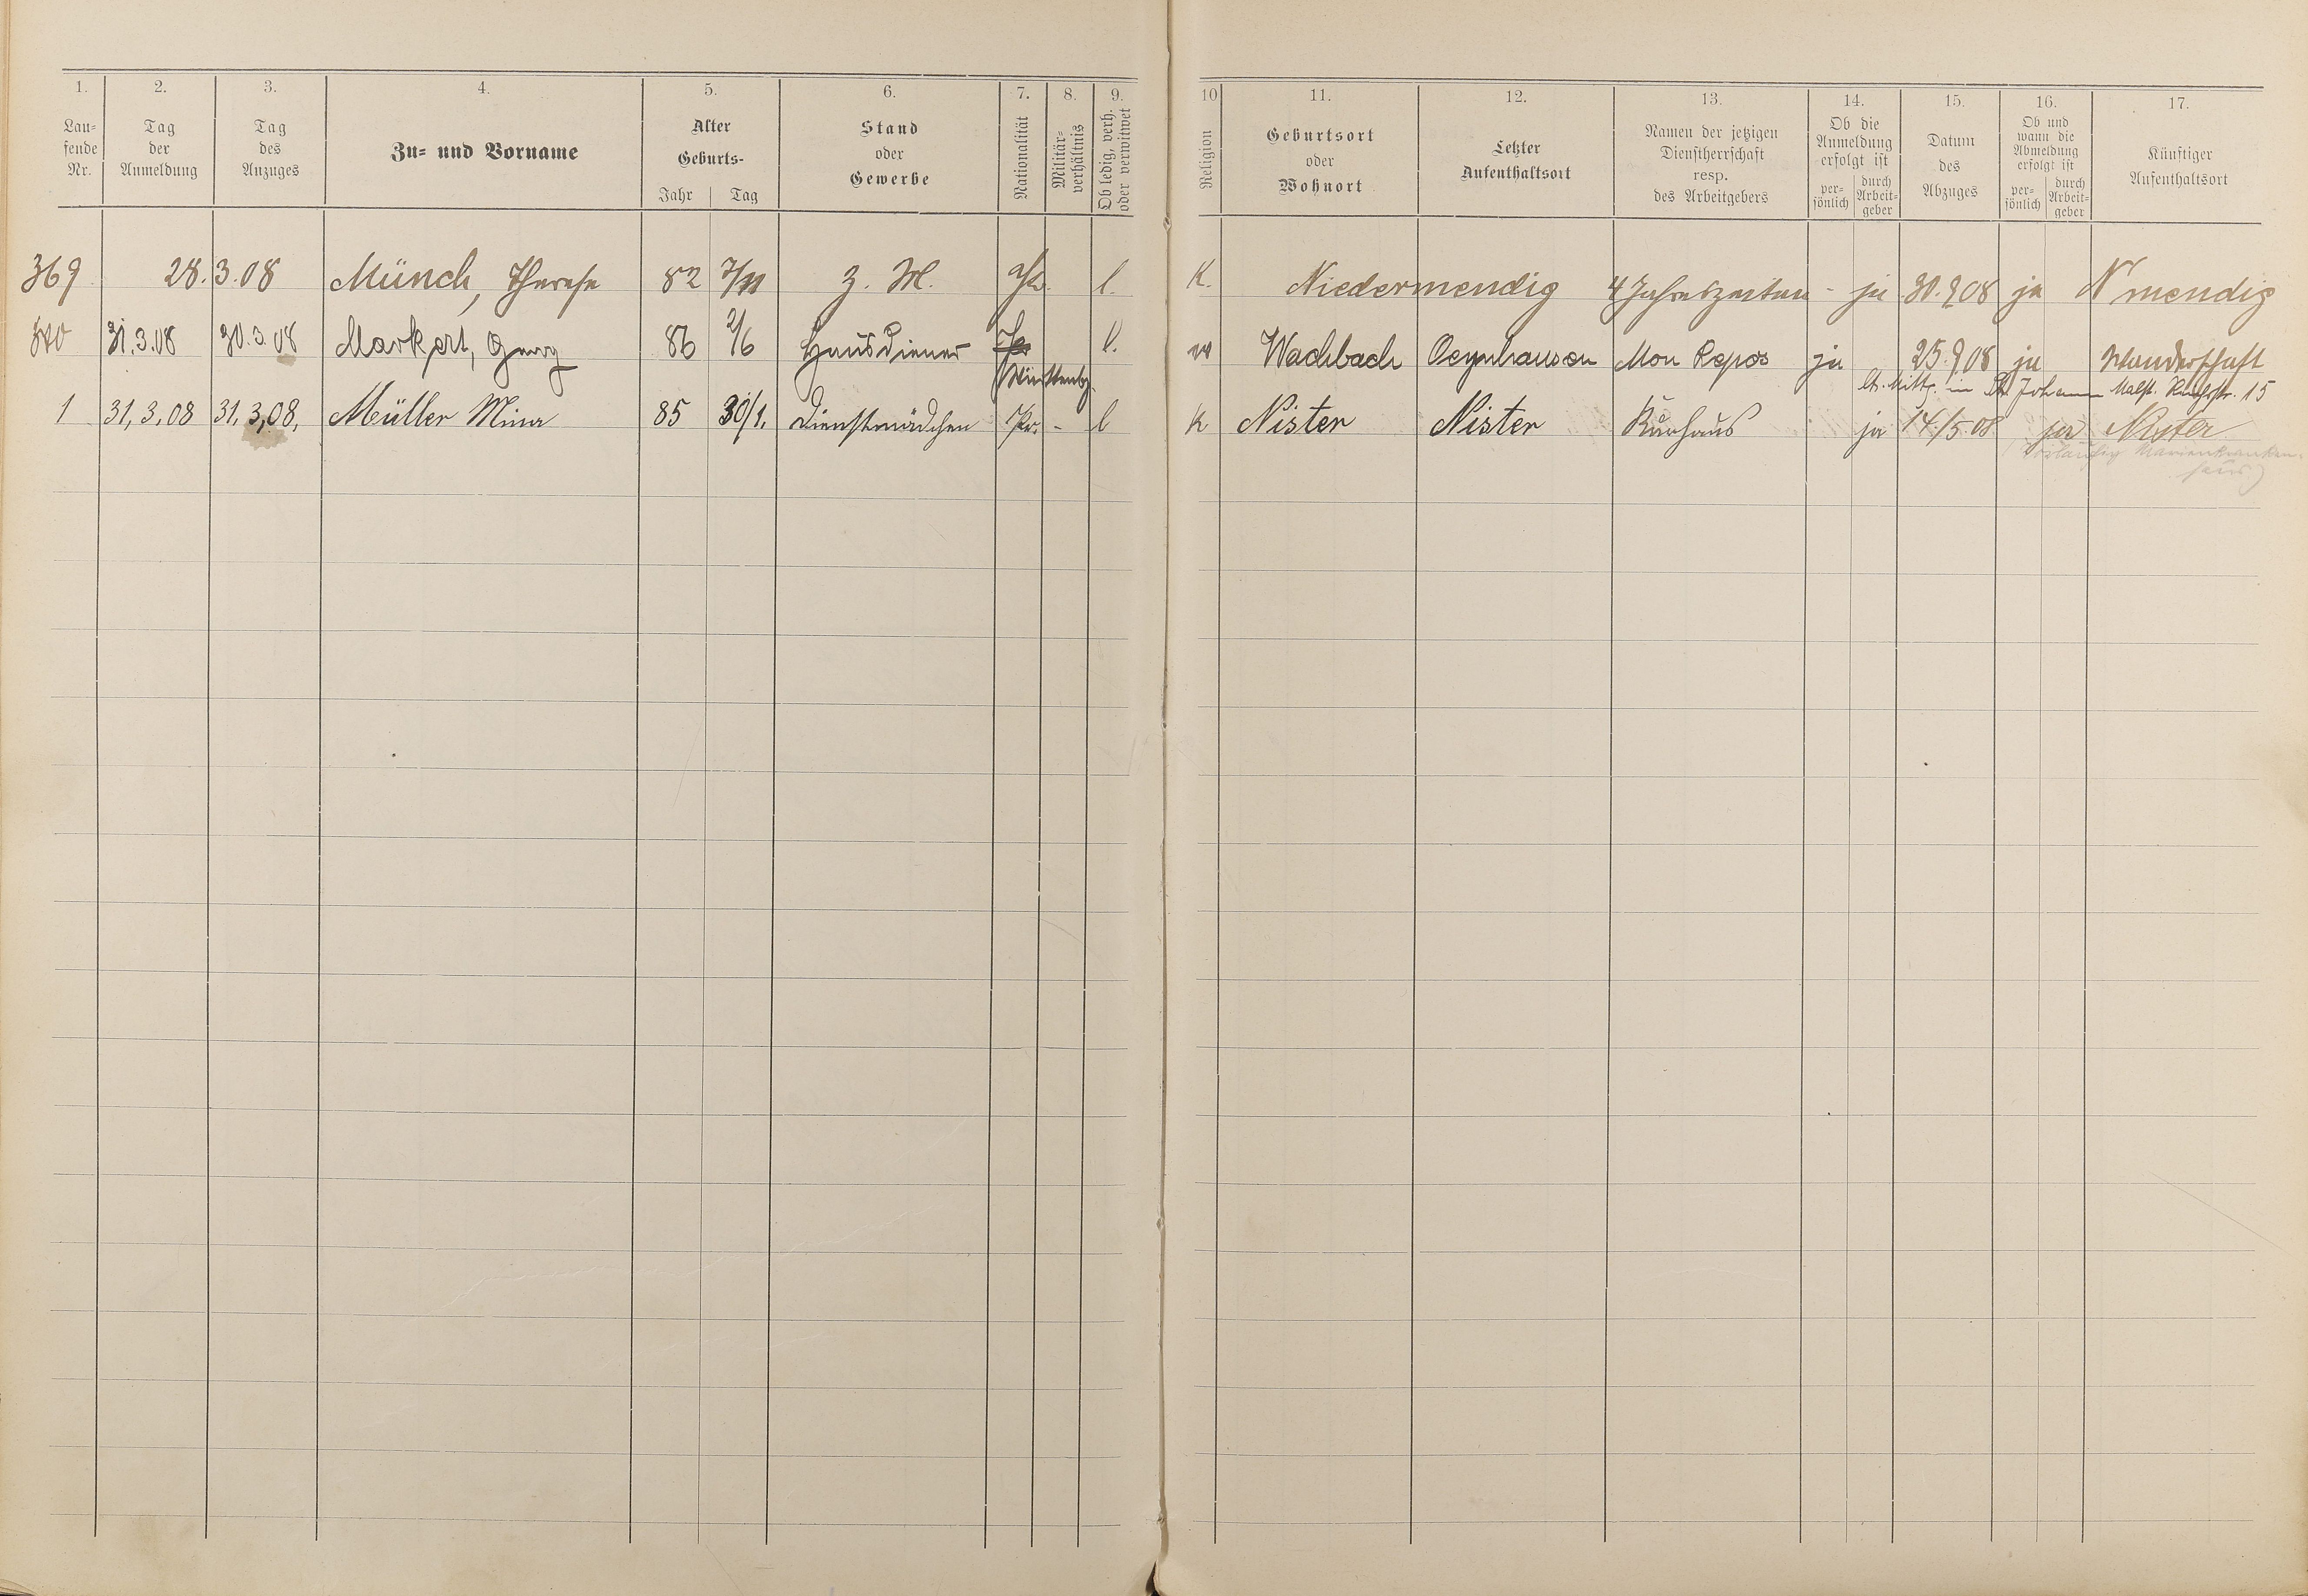 1. 2. 3. 4. 5. 6. 7. 8. 9. 10 11. 12. 13. 14. 15. 16. 17.
Laufende Nr.
Tag der Anmeldung
Tag des Anzuges
Zu= und Vorname
Alter Geburts- Jahr Tag
Stand oder Gewerbe
Nationalität
Militär-verhältnis
Ob ledig, verh. oder verwitwet
Religion
Geburtsort oder Wohnort
Letzter Aufenthaltsort
Namen der jetzigen Dienstherrschaft resp. des Arbeitgebers
Ob die Anmeldung erfolgt ist per-sönlich durch Arbeit-geber
Datum des Abzuges
Ob und wann die Abmeldung erfolgt ist per-sönlich durch Arbeit-geber
Künftiger Aufenthaltsort
369 28.3.08 Münch, Therese 82 7/11 Z. M. Pr. l. K. Niedermendig 4 Jahreszeiten - ja 30.9.08 ja N'mendig
31.3.08 30.3.08 Markert, Georg 86 2/6 Hausdiener Pr. l. Wachbach Oeynhausen Mon Repos ja 25.9.08 ja Wanderschaft
Württembg.
lt. Mittg. in St. Johann Malst. 15
1 31.3.08 31.3.08. Müller Mina 85 30/1. Dienstmädchen Pr. - l k Nister Nister Kurhaus ja 14./5.08 ja Nister
(vorläufig Marienkranken-
haus)